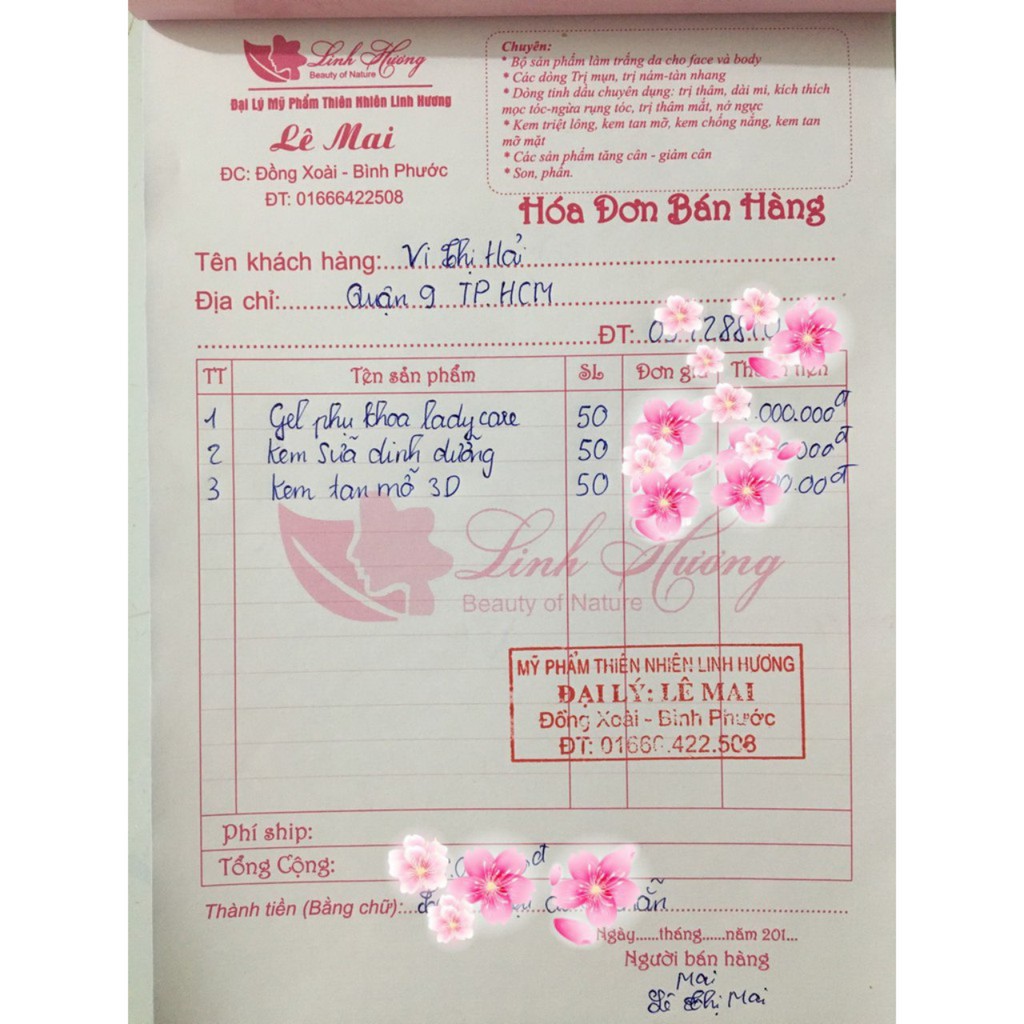 Linh Hương
Beauty of Nature
Đại Lý Mỹ Phẩm Thiên Nhiên Linh Hương
Lê Mai
ĐC: Đồng Xoài - Bình Phước
ĐT: 01666422508
Chuyên:
* Bộ sản phẩm làm trắng da cho face và body
* Các dòng Trị mụn, trị nám-tàn nhang
* Dòng tinh dầu chuyên dụng: trị thâm, dài mi, kích thích
mọc tóc-ngừa rụng tóc, trị thâm mắt, nở ngực
* Kem triệt lông, kem tan mỡ, kem chống nắng, kem tan
mỡ mặt
* Các sản phẩm tăng cân - giảm cân
* Son, phấn.
Hóa Đơn Bán Hàng
Tên khách hàng: Vi Thị Hải
Địa chỉ: Quận 9 TP. HCM
ĐT:
TT Tên sản phẩm SL Đơn
1 Gel phụ khoa lady care 50
2 Kem Sữa dinh dưỡng 50
3 Kem tan mỡ 3D 50
Linh Hương
Beauty of Nature
MỸ PHẨM THIÊN NHIÊN LINH HƯƠNG
ĐẠI LÝ: LÊ MAI
Đồng Xoài - Bình Phước
ĐT: 01666.422.508
Phí ship:
Tổng Cộng:
Thành tiền (Bằng chữ):
Ngày......tháng......năm 201...
Người bán hàng
Mai
Lê Thị Mai